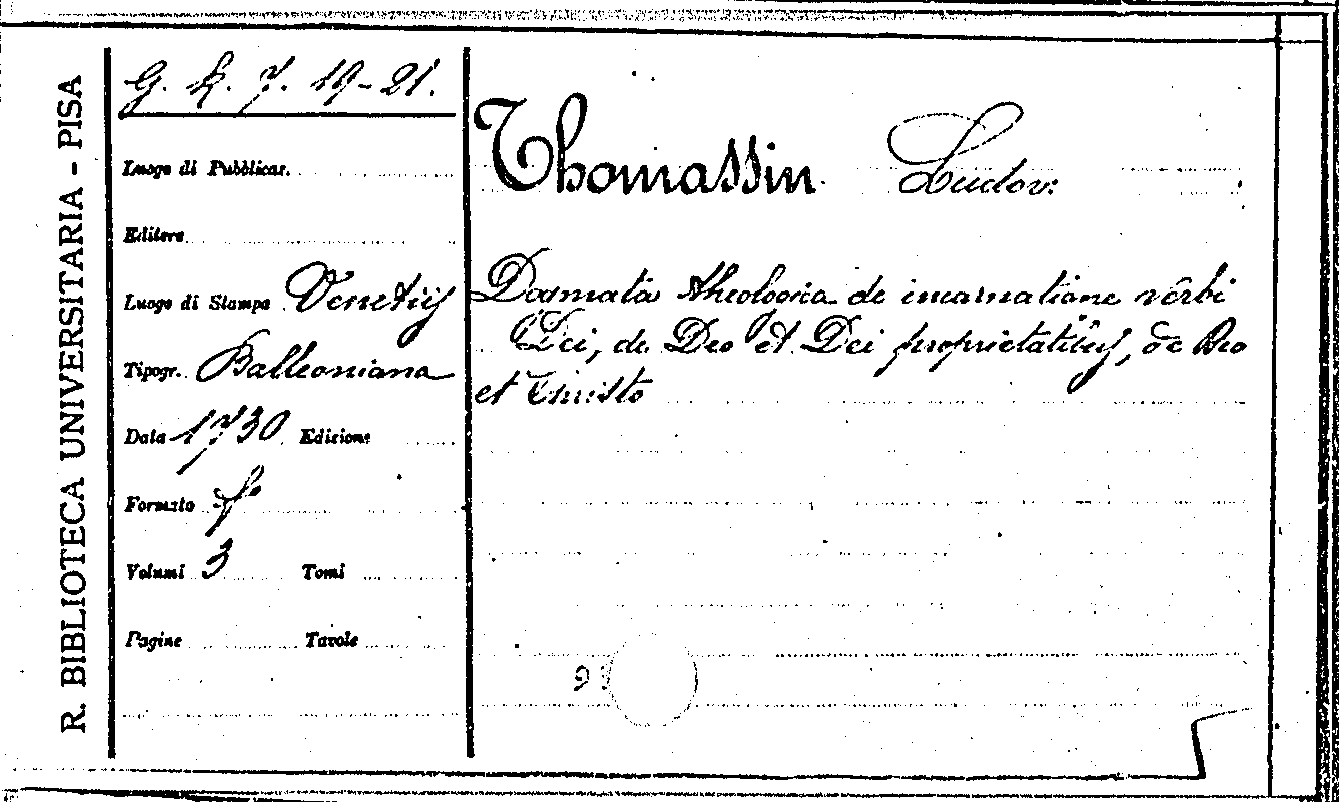 R. BIBLIOTECA UNIVERSITARIA - PISA
G. K. 7. 19-21.
Luogo di Pubblicaz.
Editore
Luogo di Stampa Venetiis
Tipogr. Balleoniana
Data 1730 Edizione
Formato f°
Volumi 3 Tomi
Pagine Tavole
Thomassin Ludov:
Dogmata theologica de incarnatione verbi
Dei, de Deo et Dei proprietatibus, de Deo
et Christo